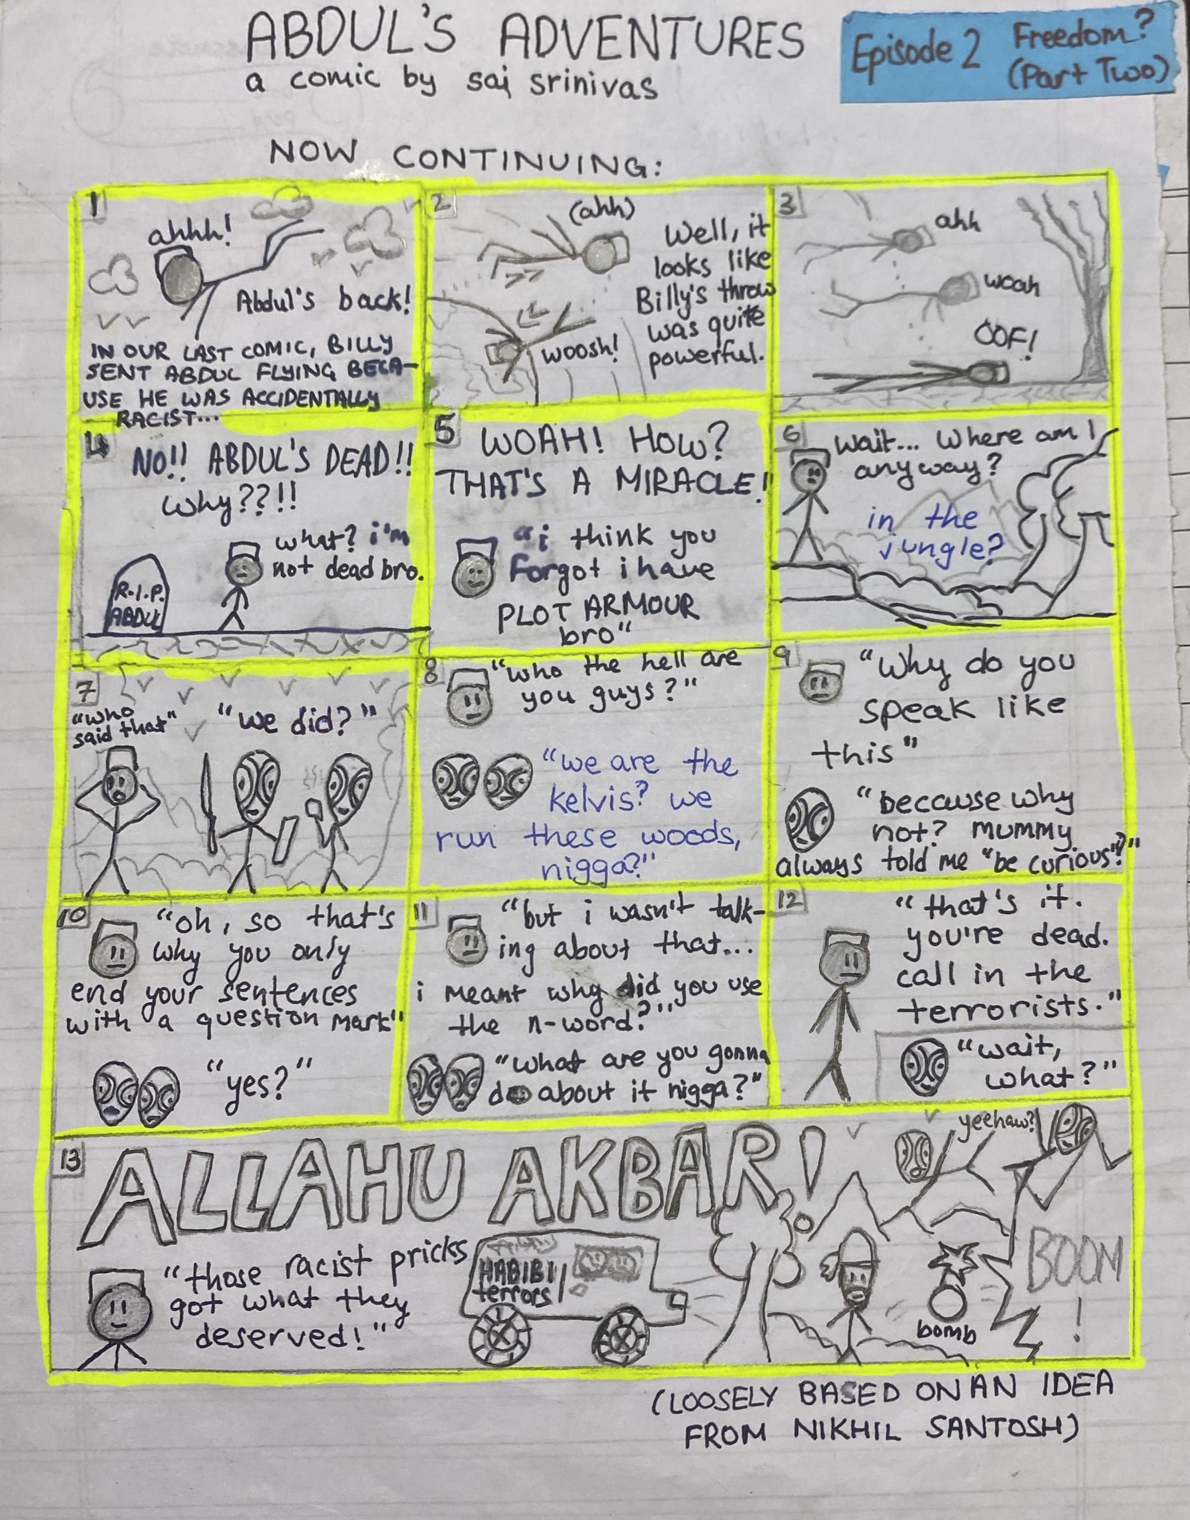 ABDUL'S ADVENTURES
a comic by sai srinivas
Episode 2 Freedom?
(Part Two)
NOW CONTINUING:
1
ahhh!
Abdul's back!
IN OUR LAST COMIC, BILLY
SENT ABDUL FLYING BECA-
USE HE WAS ACCIDENTALLY
RACIST...
2
(ahh)
Well, it
looks like
Billy's throw
was quite
powerful.
woosh!
3
ahh
woah
OOF!
4
NO!! ABDUL'S DEAD!!
Why??!!
what? i'm
not dead bro.
R.I.P.
ABDUL
5
WOAH! HOW?
THAT'S A MIRACLE!
"i think you
forgot i have
PLOT ARMOUR
bro"
6
Wait... Where am I
anyway?
in the
jungle?
7
"who
said that"
"we did?"
8
"who the hell are
you guys?"
"we are the
kelvis? we
run these woods,
nigga?"
9
"Why do you
speak like
this"
"because why
not? mummy
always told me "be curious"?"
10
"oh, so that's
why you only
end your sentences
with a question mark"
"yes?"
11
"but i wasn't talk-
ing about that...
i meant why did you use
the n-word?"
"What are you gonna
do about it nigga?"
12
"that's it.
you're dead.
call in the
terrorists."
"wait,
what?"
13
ALLAHU AKBAR!
yeehaw?
"those racist pricks
got what they
deserved!"
HABIBI
terrors
bomb
BOOM
!
(LOOSELY BASED ON AN IDEA
FROM NIKHIL SANTOSH)